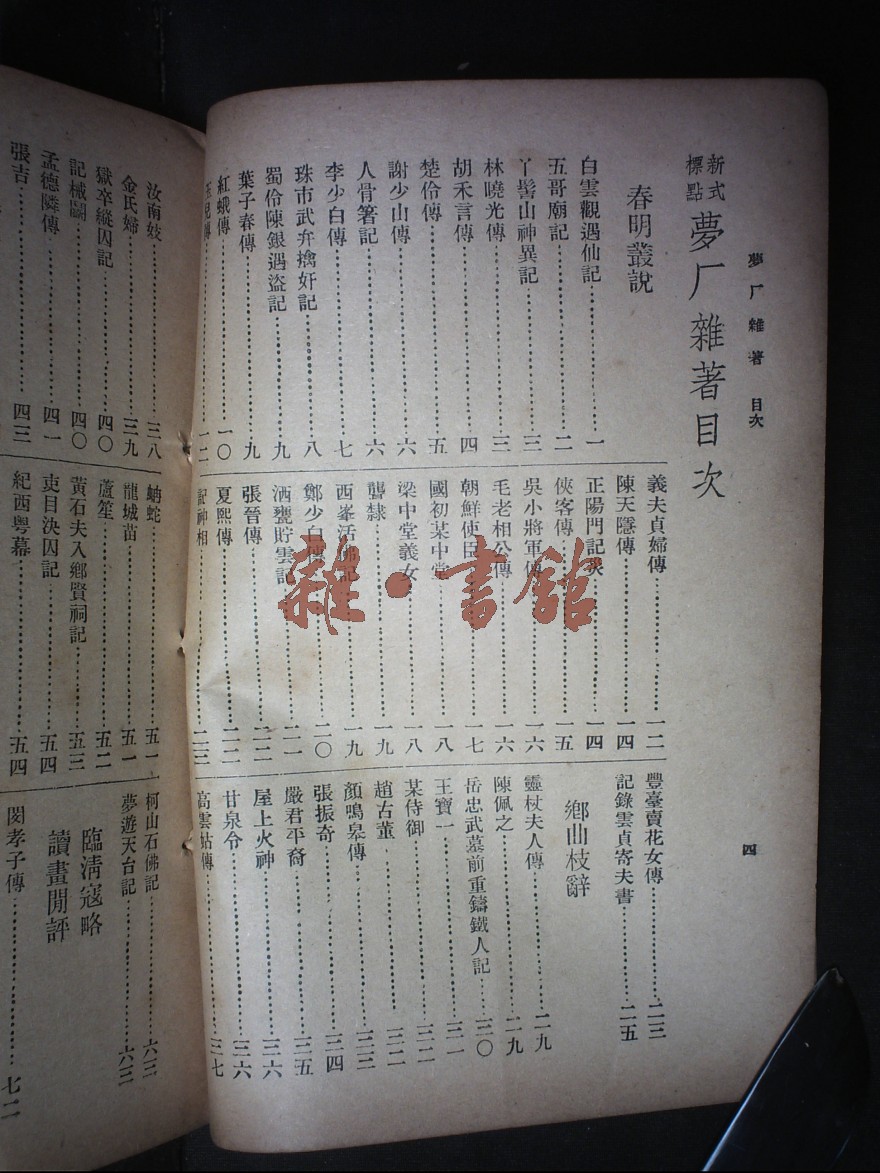 夢厂雜著 目次
四
新式標點 夢厂雜著目次
春明叢說
白雲觀遇仙記 一
五哥廟記 二
丫髻山神異記 三
林曉光傳 三
胡禾言傳 四
楚伶傳 五
謝少山傳 六
人骨箸記 六
李少白傳 七
珠市武弁擒奸記 八
蜀伶陳銀遇盜記 九
葉子春傳 九
紅蛾傳 一〇
兒傳 一二
義夫貞婦傳 一二
陳天隱傳 一四
正陽門記 一四
俠客傳 一五
吳小將軍傳 一六
毛老相公傳 一六
朝鮮使臣 一七
國初某中堂 一八
梁中堂義女 一八
聾隸 一九
西峯活佛記 一九
鄭少白傳 二〇
酒甕貯雲記 二一
張晉傳 二二
夏熙傳 二二
記神相 二三
豐臺賣花女傳 二三
記錄雲貞寄夫書 二五
鄉曲枝辭
靈杖夫人傳 二九
陳佩之 二九
岳忠武墓前重鑄鐵人記 三〇
王寶一 三一
某侍御 三二
趙古董 三二
顏鳴皋傳 三三
張振奇 三四
嚴君平裔 三五
屋上火神 三六
甘泉令 三六
高雲姑傳 三七
汝南妓 三八
金氏婦 三九
獄卒縱囚記 四〇
記械鬭 四〇
孟德隣傳 四一
張吉 四三
蚺蛇 五一
龍城苗 五一
蘆笙 五二
黃石夫入鄉賢祠記 五三
吏目決囚記 五四
紀西粵幕 五四
柯山石佛記 六三
夢遊天台記 六三
臨清寇略
讀畫閒評
閔孝子傳 七二
雜·書館